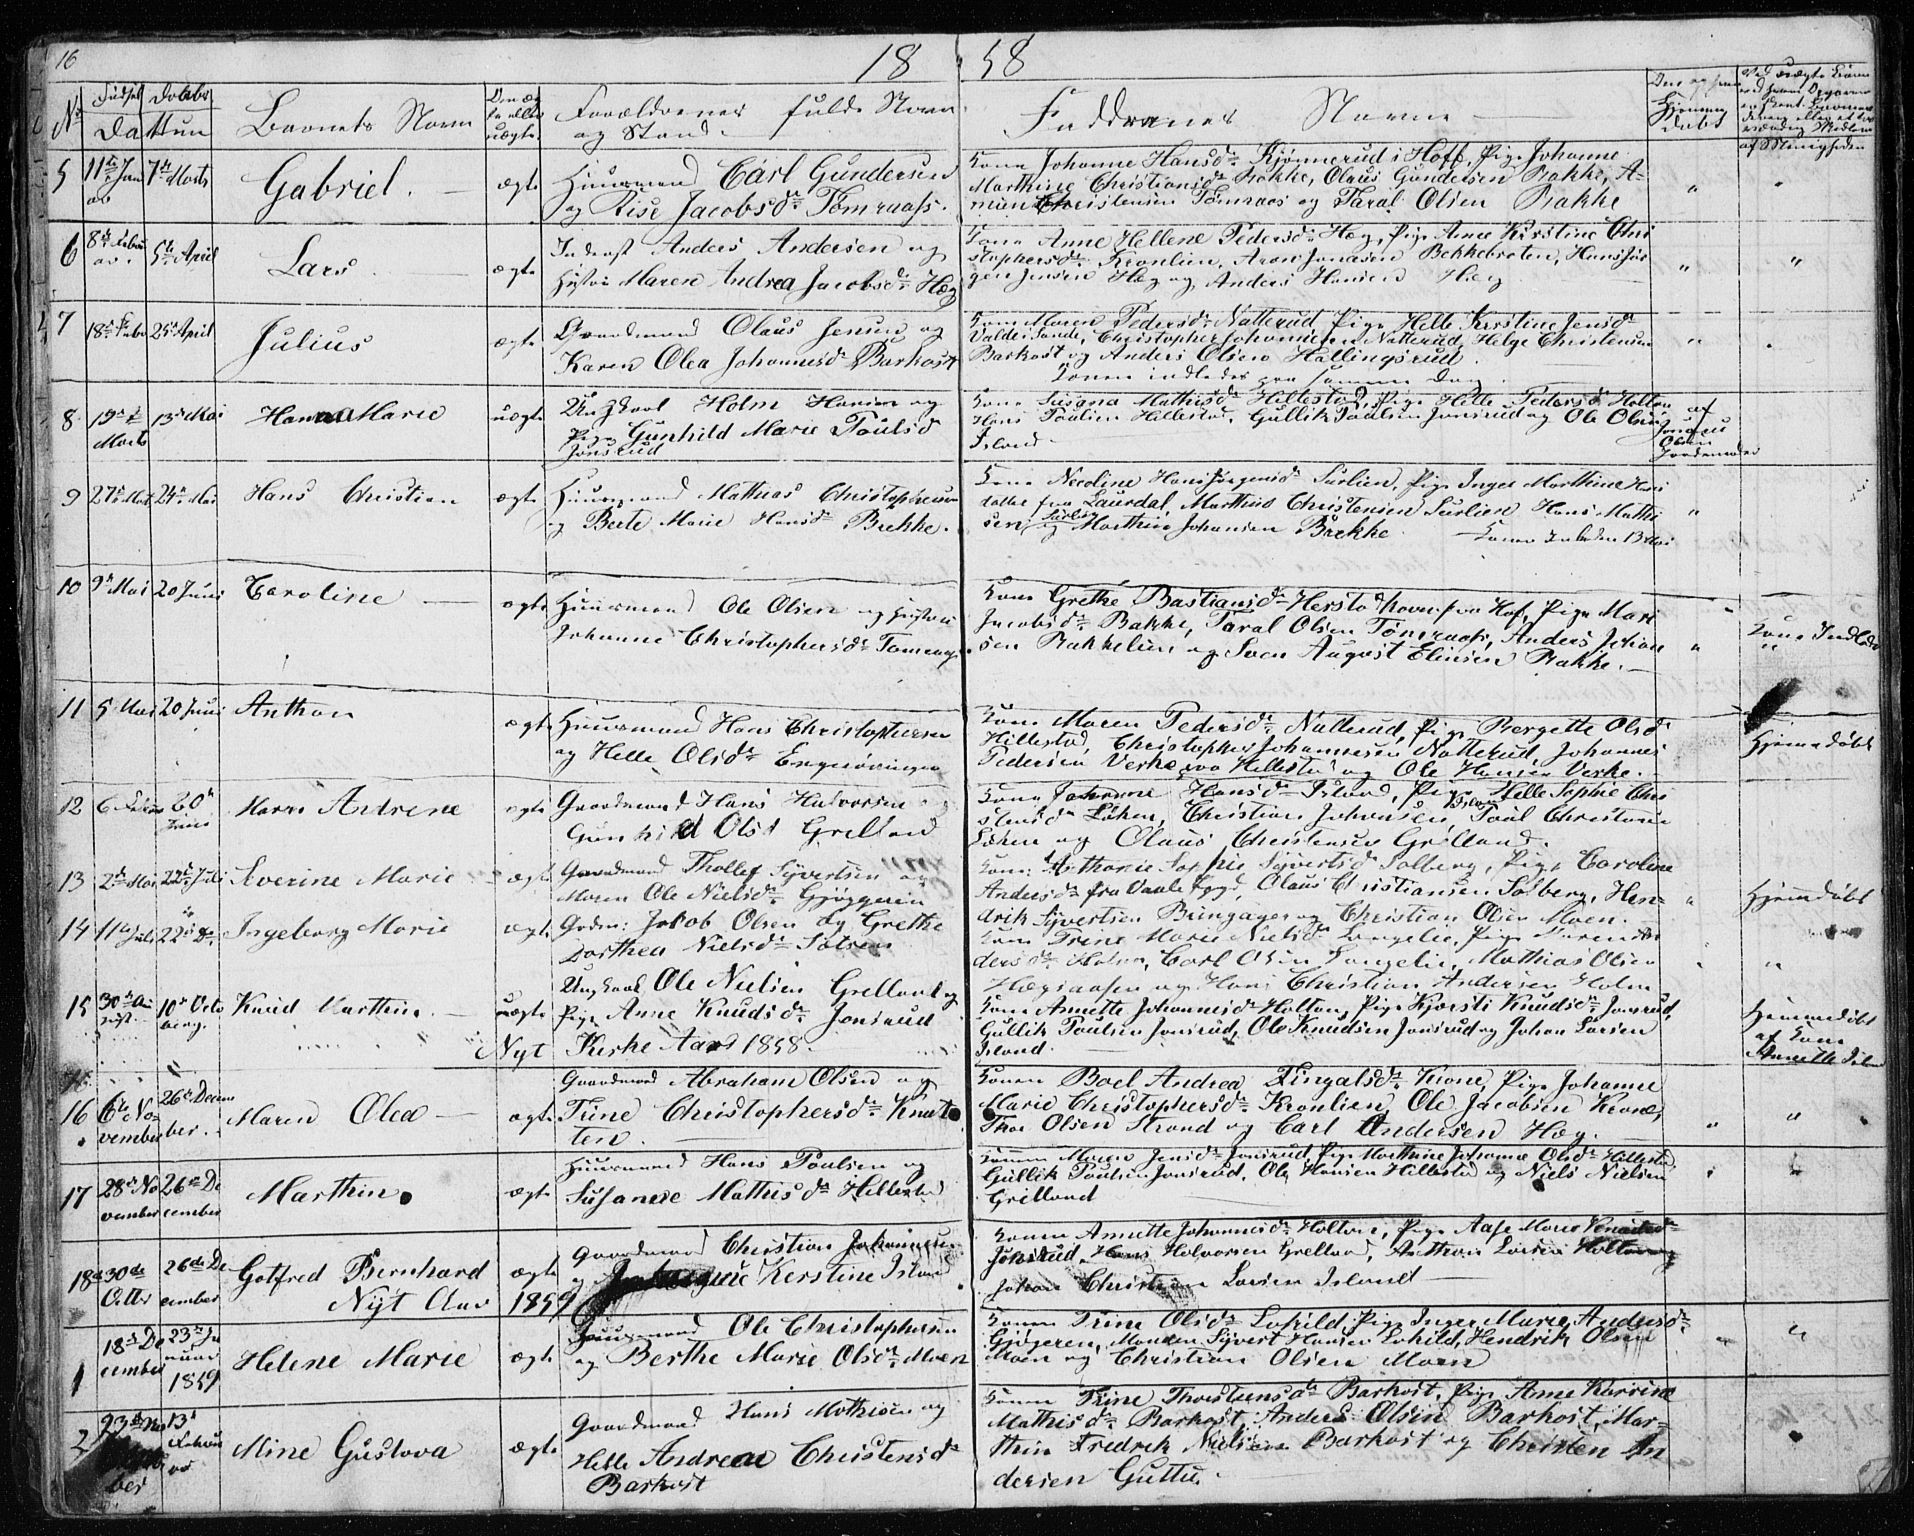 16
18 58
No
Fødsel Daabs
Dattum
Barnets Navn
Den æg
te eller
uægte
Forældrenes fulde Navn
og Stand.
Faddernes Navne
Hjemme
Døbt
5
11te Janu
ar
7de Marts
Gabriel.
ægte
Huusmand Carl Gundersen
og Lise Jacobsdr Tømraass.
Kone Johanne Hansdr Kjønnerud i Hoff, Pige Johanne
Marthine Christiansdr Bakke, Olaus Gundersen Bakke, A-
mun Christensen Tømraas og Taral Olsen Bakke
6
8de Febru
ar.
5te April
Lars
ægte
Inderst Anders Andersen og
Hustru Maren Andrea Jacobsdr Hæg
Kone Anne Hellene Pedersdr Hæg, Pige Anne Kirstine Chri
stophersdr Kronlien, Aron Jonasen Bekkebroten, Hans Jør
gen Jensen Hæg og Anders Hansen Hæg
7
18de Febr
25de April
Julius
ægte
Gaardmand Olaus Jensen og
Karen Olea Johannesdr Barkost
Kone Maren Pedersdr Natterud Pige Helle Kirstine Jensdr
Valde Sande, Christopher Johannesen Natterud, Helge Christensen
Barkost og Anders Olsen Hallingsrud.
Konen indledes paa samme Dag.
8
19de
Marts
13de Mai
Hanna Marie
uægte
Ungkarl Holm Hansen og
Pige Gunhild Marie Poulsd
Jonsrud
Kone Susana Mathisdr Hillestad, Pige Helle Pedersdr Holtan,
Hans Poulsen Hillestad, Gullik Poulsen Jonsrud og Ole Olsen
Island.
af
Olsen
Jordemoder
9
27de Mart
24de Mai
Hans Christian
ægte
Huusmand Mathias Christophersen
og Berte Marie Hansdr Brekke.
Kone Nicoline Hans Jørgensdr Surlien, Pige Inger Marthine Hans
datter fra Laurdal, Marthins Christensen Surlien Hans Mathi
sen Surlien og Marthin Johansen Brekke. Konen Inledes 13 Mai
10
9de Mai
20 Juni
Caroline
ægte
Huusmand Ole Olsen og Hustru
Johanne Christophersdr Tømraas.
Kone Grethe Bastiansdr Herstad haven fra Hof, Pige Mari
Jacobsdr Bakke, Taral Olsen Tømraas, Anders Johan
sen Bakkelien og Sven August Elinsen Bakke.
Kone Indledt
11
5 Mai
20 Juni
Anthon
ægte
Huusmand Hans Christophersen
og Helle Olsdr Engnæringen
Kone Maren Pedersdr Natterud, Pige Bergette Olsdr
Hillestad, Christopher Johannesen Natterud, Johannes
Pedersen Verke paa Hillestad og Ole Hansen Verke.
Hjemmedøbt
12
6 Febru
20de
Juni
Maren Andrene
ægte
Gaardmand Hans Halvorsen
Gunhild Olsd Grelland
Kone Johanne Hansdr Island, Pige Helle Sophie Chri
stensdr Løken, Christian Johansen Island, Poul Christensen
Løken og Olaus Christensen Grelland.
13
2de Mai
22de Juli
Severine Marie
ægte
Gaardmand Thollef Syvertsen og
Maren Ole Nielsdr Gjøggeren
Kone: Anthonie Sophie Syvertsdr Solberg, Pige Caroline
Andersdr fra Vaale Sogn, Olaus Christiansen Solberg, Hen-
drik Syvertsen Bringager og Christian Olsen Moen.
Hjemmdøbt
14
11te Juli
22de Do.
Ingeborg Marie
ægte
Gaardm: Jakob Olsen og Grethe
Dorthea Nielsdr Solsen
Kone Trine Marie Nielsdr Langelie, Pige Karen An
dersdr Holm, Carl Olsen Langelie, Mathias Olsen
Hægsaasen og Hans Christian Andersen Holm
15
30de Au
gust.
10de Octo
berg.
Knud Marthin.
uægte
Ungkarl Ole Nielsen Grelland og
Pige Anne Knudsdr Jonsrud
Kone Annette Johannesdr Holtan, Pige Kjersti Knudsdr Jonsrud,
Gullik Poulsen Jonsrud, Ole Knudsen Jonsrud og Johan Larsen
Island.
Hjemmedøbt
af Kone
Annette Isl
Nyt Kirke Aar 1858.
16
6te No-
vember
26de Decem
ber.
Maren Olea
ægte
Gaardmand Abraham Olsen og
Trine Christophersdr Knat
ten.
Konen Boel Andrea Fingalsdr Krone, Pige Johanne
Marie Christophersdr Kronlien, Ole Jacobsen Krone,
Thor Olsen Strand og Carl Andersen Hæg.
17
28de No
vember
26de De
cember
Marthin.
ægte
Huusmand Hans Poulsen og
Susanne Mathisdr Hillestad
Konen Maren Jensdr Jonsrud, Pige Marthine Johanne Olsdr Hillestad,
Gullik Poulsen Jonsrud, Ole Hansen Hillestad og Niels Nielsen
Grelland
18de
30de
Octbr
26de De
cember
Gotfred Bernhard
ægte
Gaardmand Christian Johannesen
og Kerstine Island
Konen Annette Johannesdr Holtan, Pige Aase Marie Knudsdr
Jonsrud, Hans Halvorsen Grelland, Anthon Larsen Holtan og
Johan Christian Larsen Island
Nyt Aar 1859
1
18de De
cember
23de Ja
nuar
1859
Helene Marie
ægte
Huusmand Ole Christophersen
og Berthe Marie Olsdr Moen
Konen Trine Olsdr Løkild, Pige Inger Marie Andersdr
Gjøgeren, Manden Syvert Hansen Løkild, Hendrik Olsen
Moen og Christian Olsen Moen
2
23de
ber
13de
Februar
Mine Gustava
ægte
Gaardmand Hans Mathisen og
Helle Andrea Christensdr
Barkost
Konen Trine Thorstensdr Barkost, Pige Anne Karrine
Mathisdr Barkost, Anders Olsen Barkost, Mar-
thin Fredrik Nielsen Barkost og Christen An
dersen Guttu.